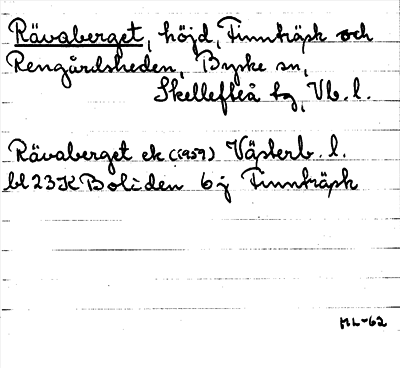 Rävaberget, höjd, Finnträsk och
Rengårdsheden, Byske sn,
Skellefteå tg, Vb. l.
Rävaberget ek (1959) Västerb. l.
bl 23K Boliden 6j Finnträsk
ML-62